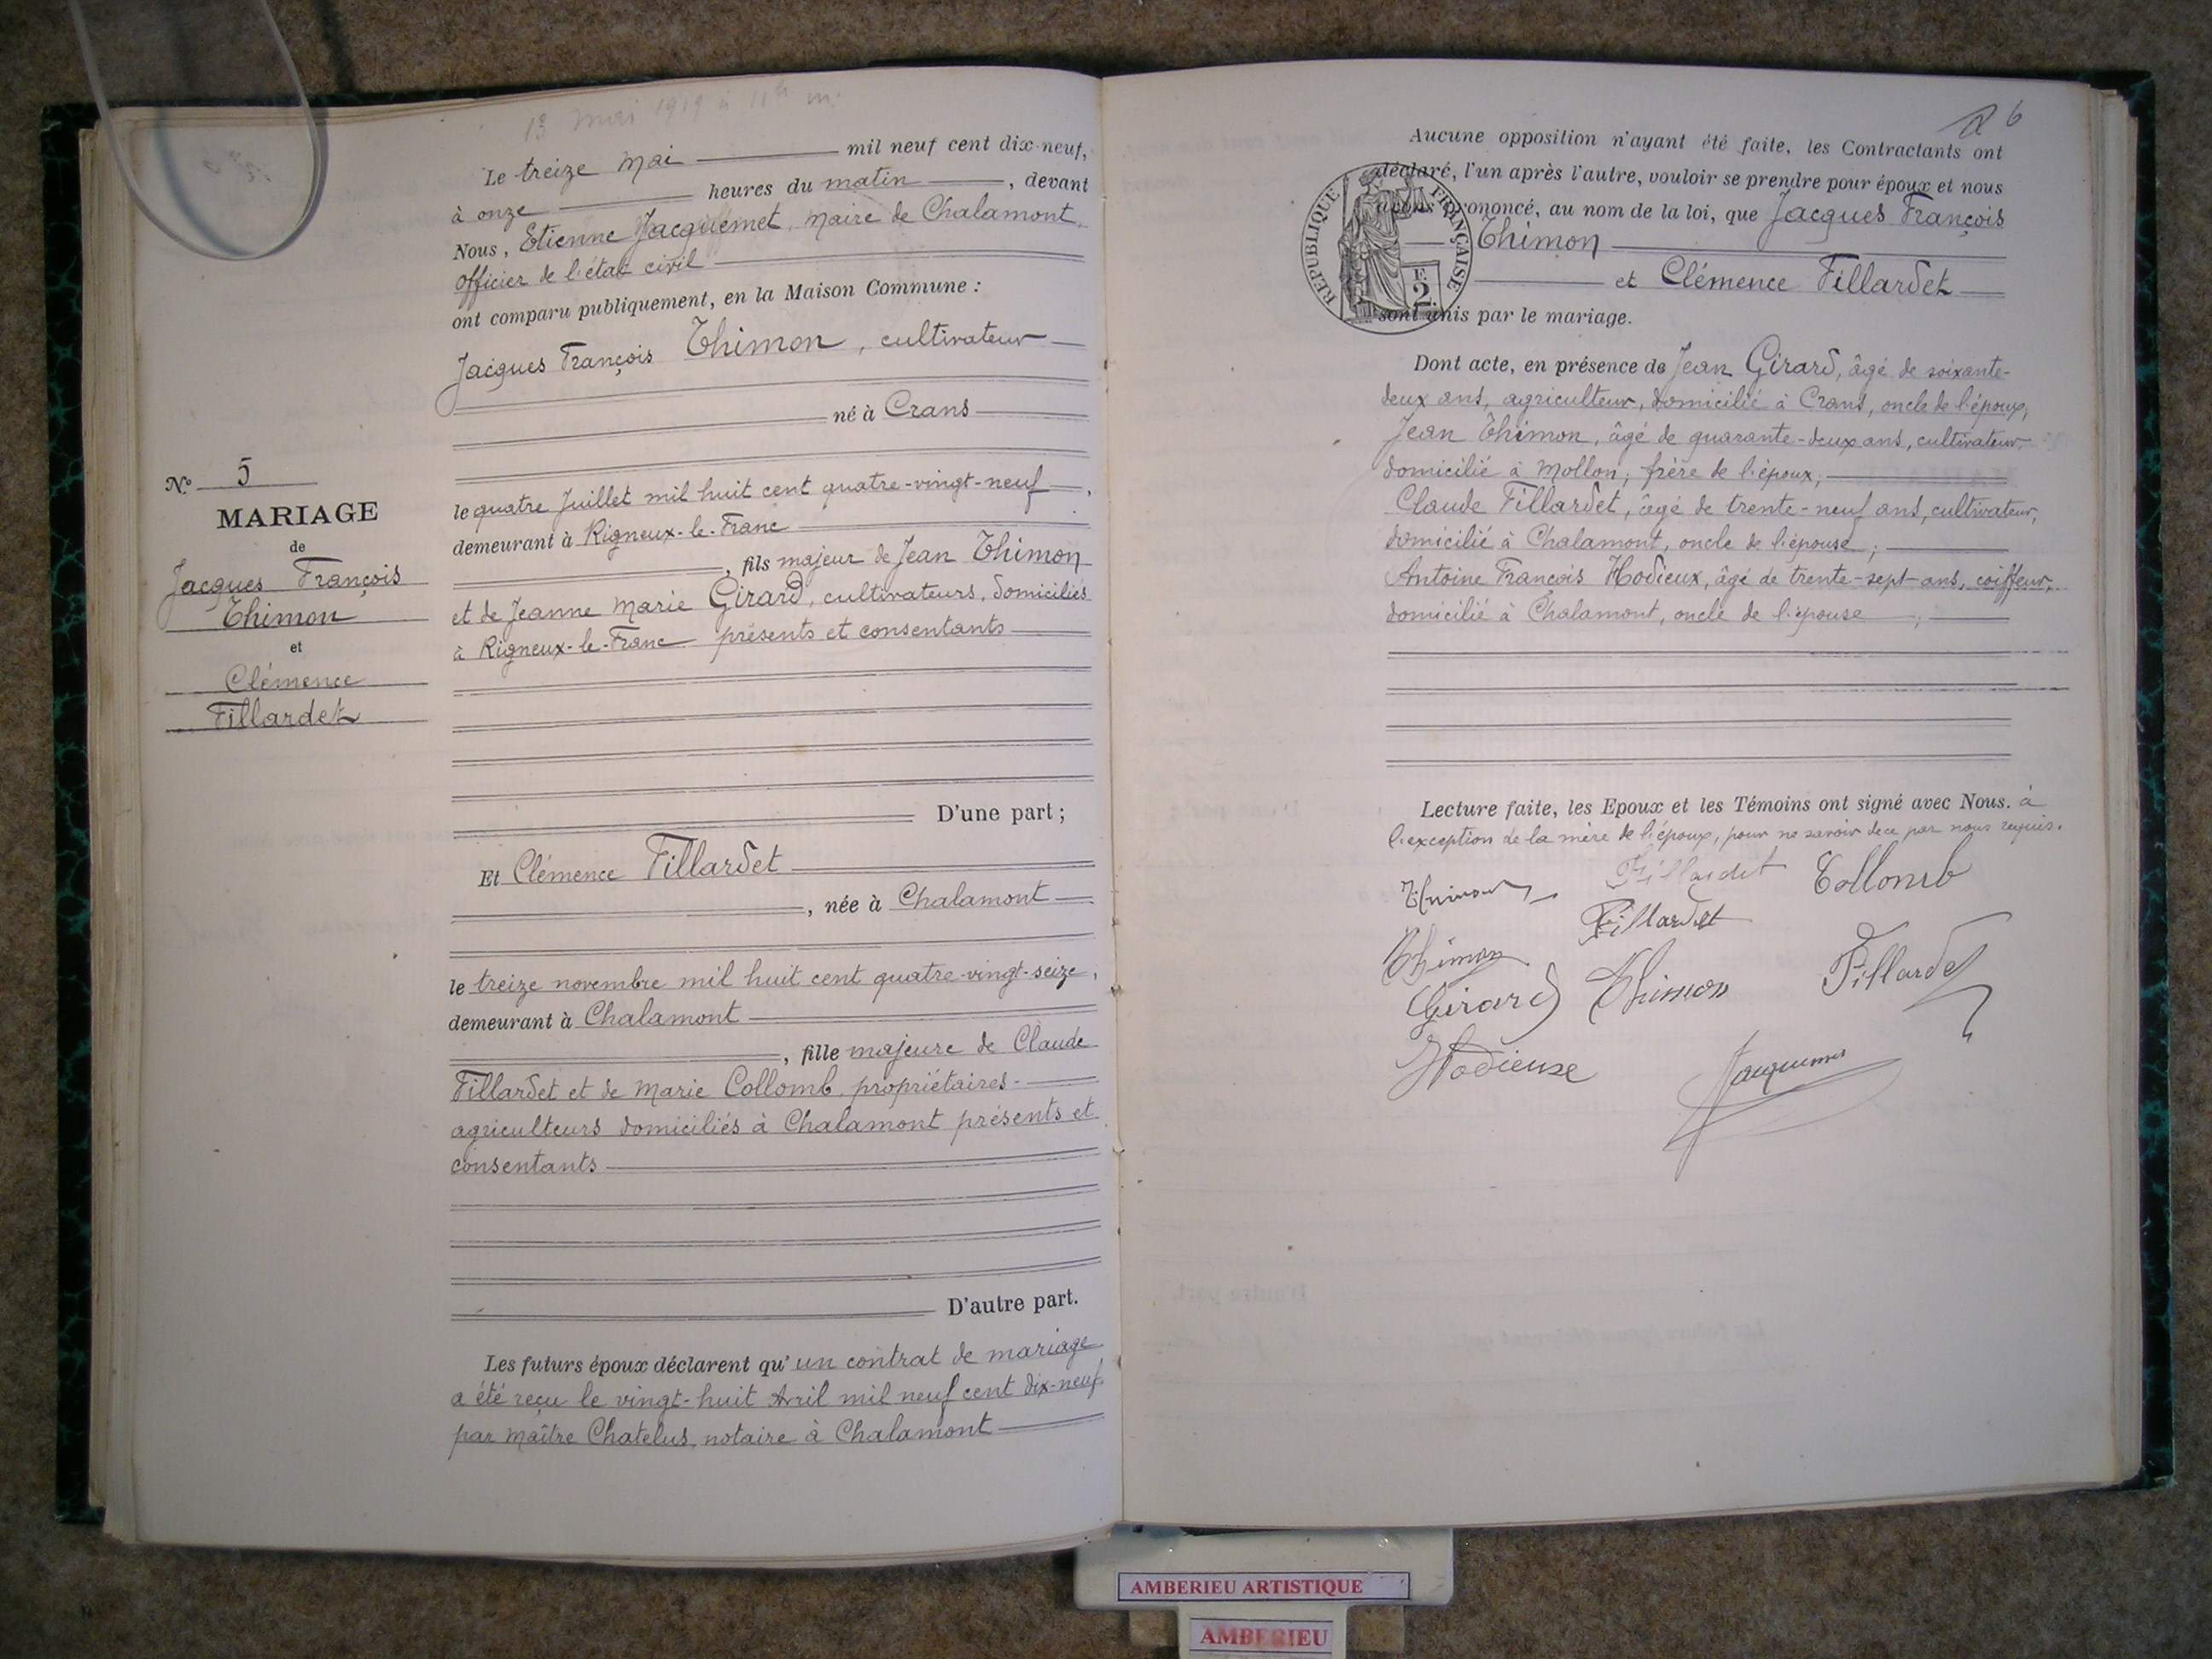 13 mai 1919 à 11h m.
Le treize Mai mil neuf cent dix-neuf,
à onze heures du matin, devant
Nous, Etienne Jacquemet, Maire de Chalamont,
officier de l'état civil
ont comparu publiquement, en la Maison Commune :
Jacques François Thimon, cultivateur
né à Crans
le quatre Juillet mil huit cent quatre-vingt-neuf,
demeurant à Rigneux-le-Franc
, fils majeur de Jean Thimon
et de Jeanne Marie Girard, cultivateurs, domiciliés
à Rigneux-le-Franc présents et consentants
D'une part ;
Et Clémence Fillardet
, née à Chalamont
le treize novembre mil huit cent quatre-vingt-seize,
demeurant à Chalamont
, fille majeure de Claude
Fillardet et de Marie Collomb, propriétaires-
agriculteurs domiciliés à Chalamont présents et
consentants
D'autre part.
Les futurs époux déclarent qu'un contrat de mariage
a été reçu le vingt-huit Avril mil neuf cent dix-neuf
par Maître Chatelus, notaire à Chalamont
N° 5
MARIAGE
de
Jacques François
Thimon
et
Clémence
Fillardet
6
Aucune opposition n'ayant été faite, les Contractants ont
déclaré, l'un après l'autre, vouloir se prendre pour époux et nous
avons prononcé, au nom de la loi, que Jacques François
Thimon
et Clémence Fillardet
sont unis par le mariage.
REPUBLIQUE FRANÇAISE
F.
2.
Dont acte, en présence de Jean Girard, âgé de soixante-
deux ans, agriculteur, domicilié à Crans, oncle de l'époux,
Jean Thimon, âgé de quarante-deux ans, cultivateur
domicilié à Mollon, frère de l'époux,
Claude Fillardet, âgé de trente-neuf ans, cultivateur,
domicilié à Chalamont, oncle de l'épouse ;
Antoine François Hodieux, âgé de trente-sept ans, coiffeur,
domicilié à Chalamont, oncle de l'épouse ;
Lecture faite, les Epoux et les Témoins ont signé avec Nous. à
l'exception de la mère de l'époux, pour ne savoir de ce par nous requis.
Thimon Fillardet Collomb
Fillardet
Thimon
Girard Thimon Fillardet
Hodieux
Jacquemet
AMBERIEU ARTISTIQUE
AMBERIEU